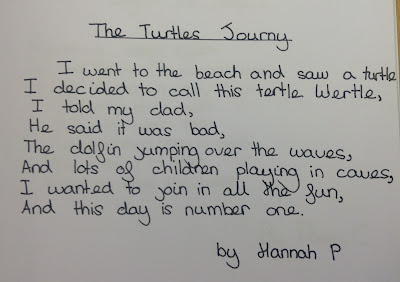 The Turtles Journy
I went to the beach and saw a turtle
I decided to call this tertle Wertle,
I told my dad,
He said it was bad,
The dolfin jumping over the waves,
And lots of children playing in caves,
I wanted to join in all the fun,
And this day is number one.
by Hannah P